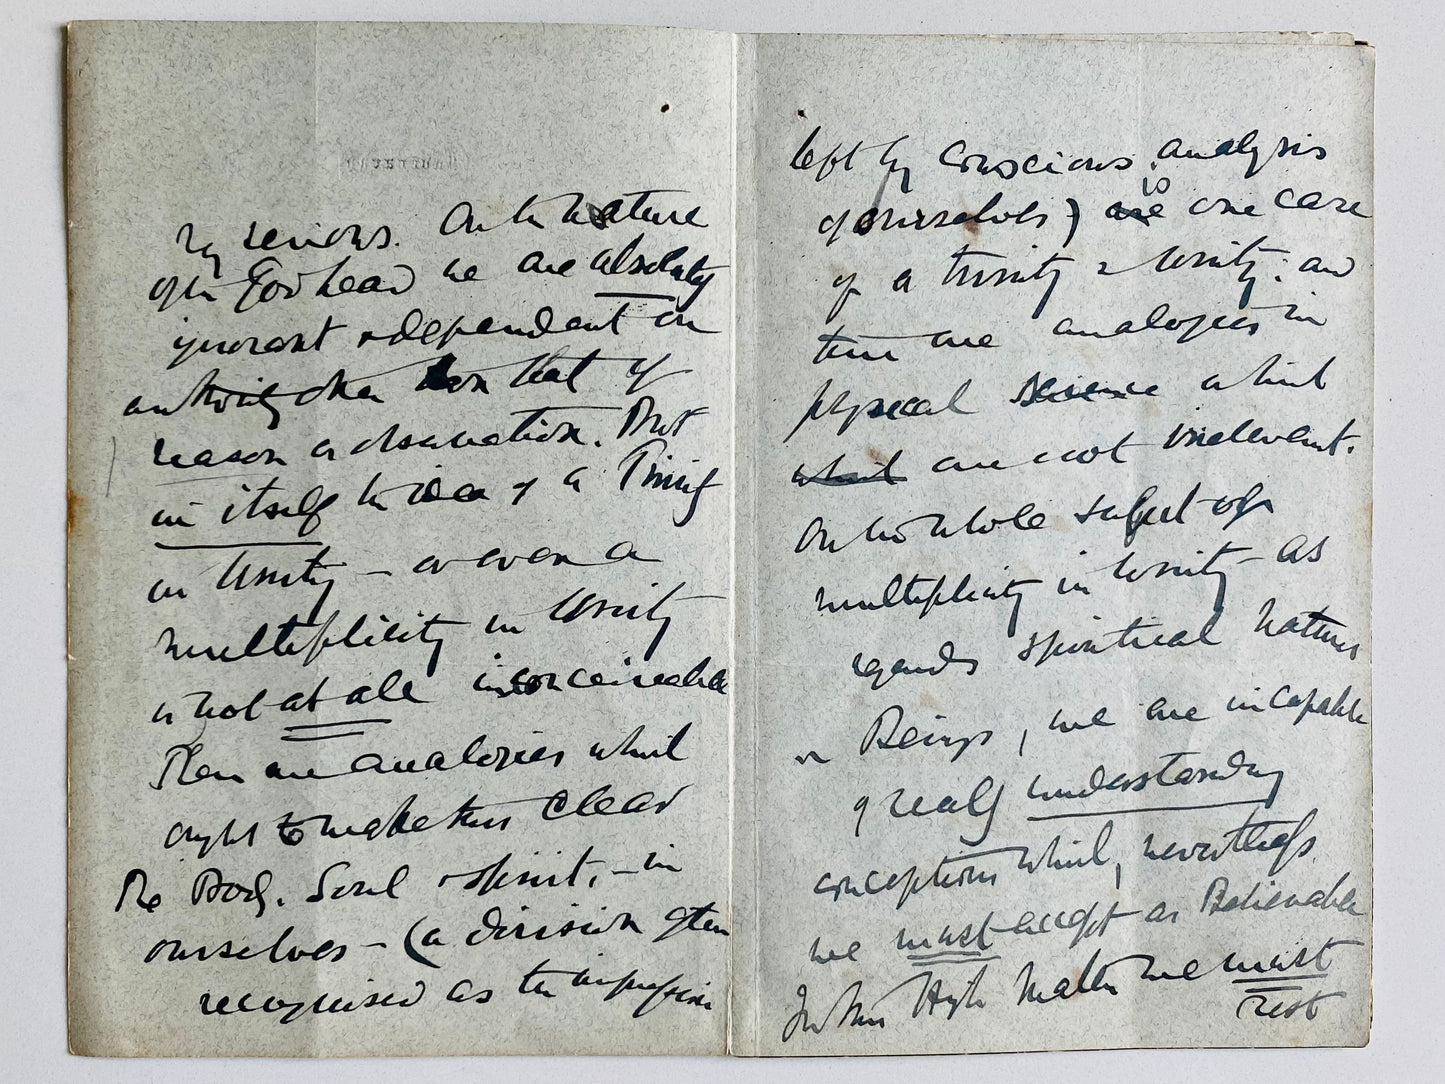 my reviews. On the nature
of the Godhead we are absolutely
ignorant & dependent on
authority other than that of
reason or observation. But
in itself the idea of a Trinity
in Unity – or even a
multiplicity in Unity
is not at all inconceivable
There are analogies which
ought to make this clear
The Body, Soul & spirit, – in
ourselves – (a division often
recognised as the impression
left by conscious analysis
of ourselves) are is one case
of a trinity & Unity: and
there are analogies in
physical science which
which are not irrelevant.
On the whole subject of
multiplicity in Unity – as
regards spiritual natures
or Beings, we are incapable
of really understanding
conceptions which, nevertheless
we must accept as Believable
In this High matter we must
rest